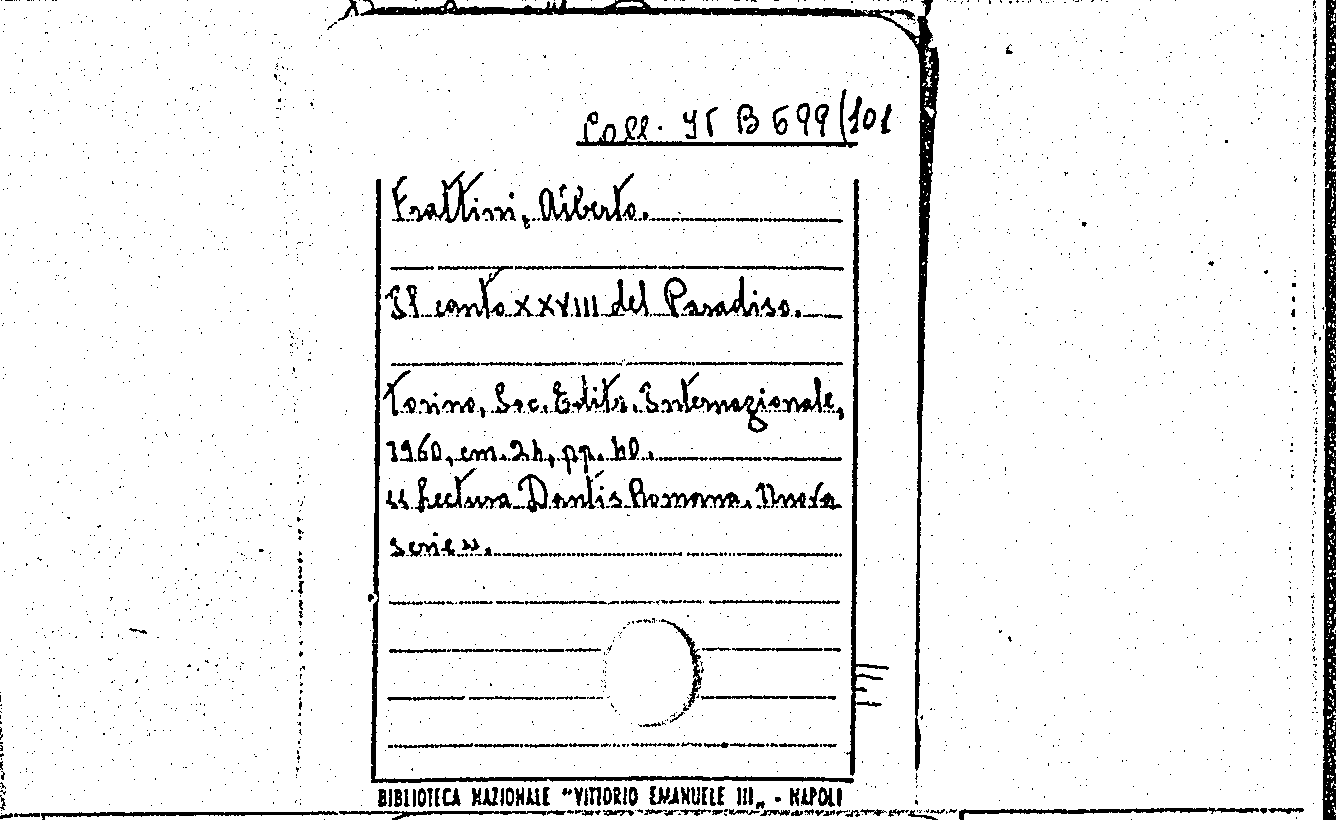 Coll. IT B 699/101
Frattini, Alberto.
Il canto XXVIII del Paradiso.
Torino, Soc. Editr. Internazionale,
1960, cm. 24, pp. 40.
«Lectura Dantis Romana. Nuova
serie».
BIBLIOTECA NAZIONALE "VITTORIO EMANUELE III„ - NAPOLI